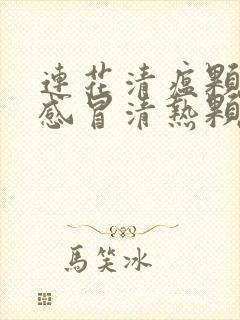 連花清瘟顆
感冒清熱顆
馬笑冰